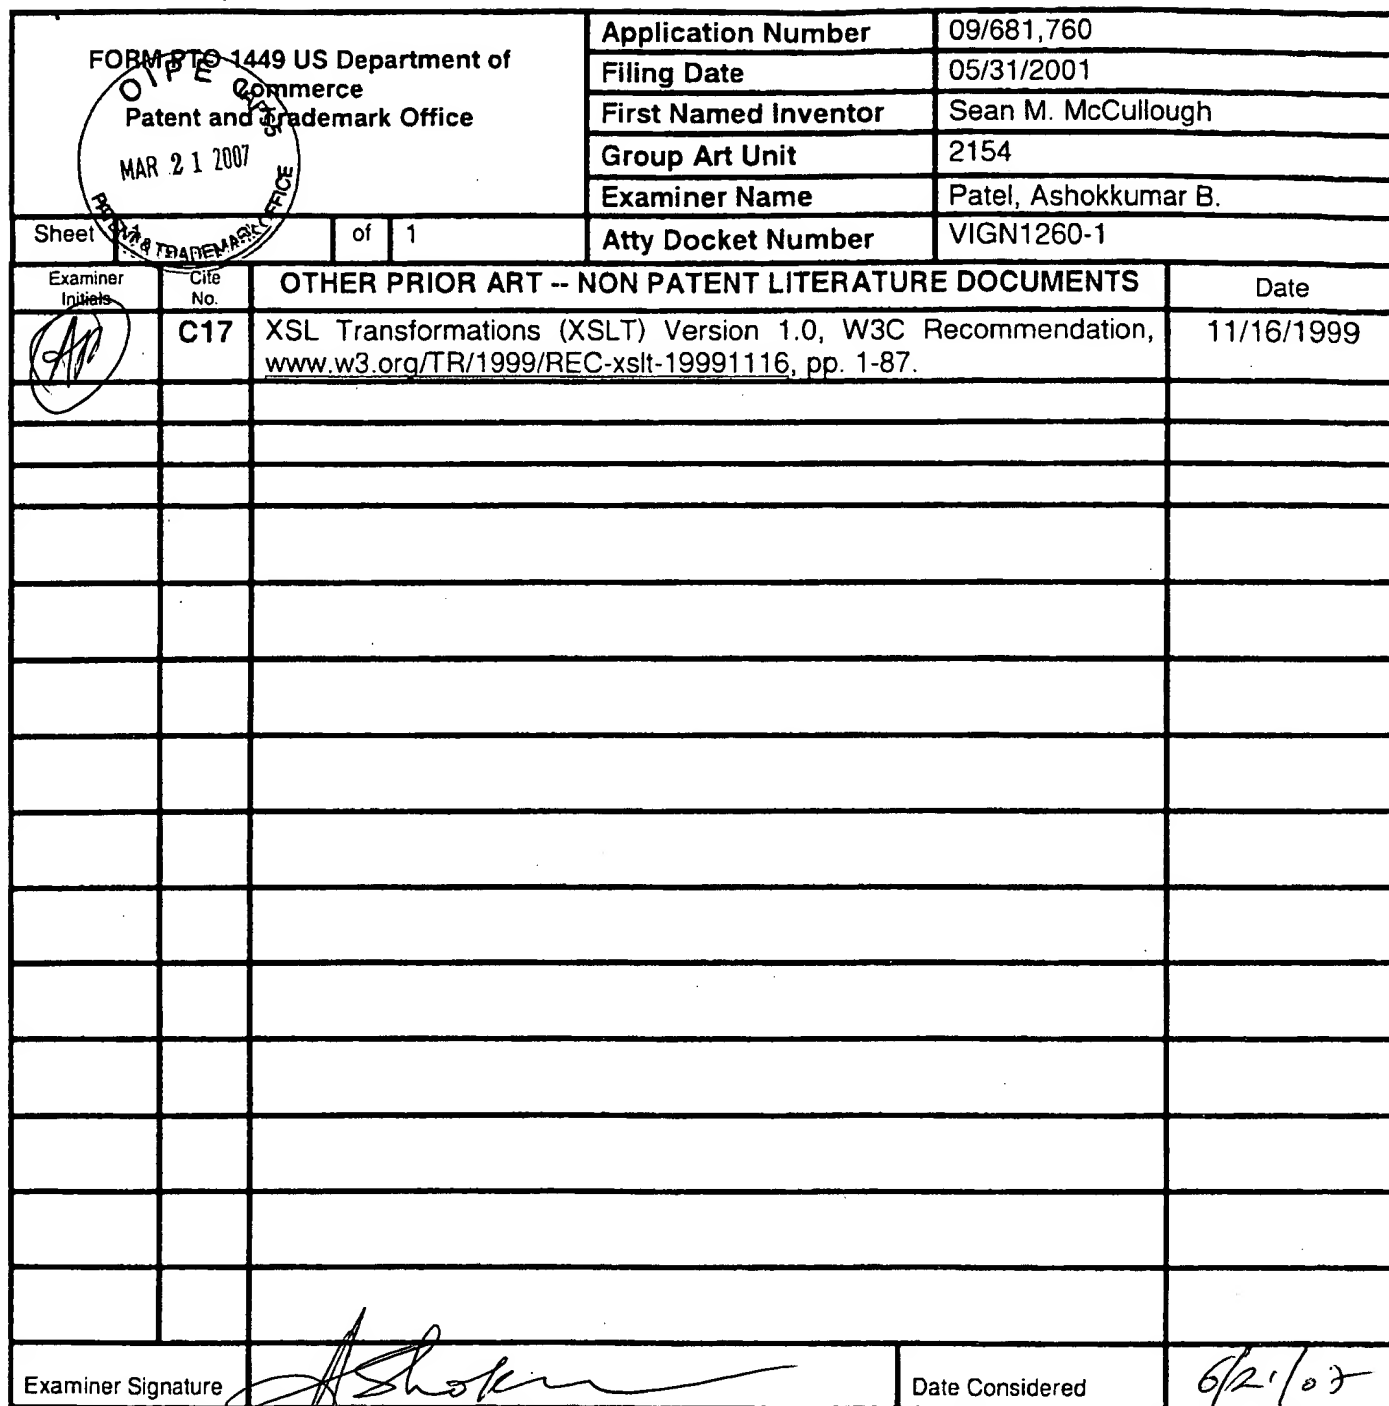 FORM PTO 1449 US Department of
Commerce
Patent and Trademark Office
OIPE
MAR 21 2007
PATENT & TRADEMARK OFFICE
Application Number 09/681,760
Filing Date 05/31/2001
First Named Inventor Sean M. McCullough
Group Art Unit 2154
Examiner Name Patel, Ashokkumar B.
Sheet 1 of 1 Atty Docket Number VIGN1260-1
Examiner Initials Cite No. OTHER PRIOR ART -- NON PATENT LITERATURE DOCUMENTS Date
AP C17 XSL Transformations (XSLT) Version 1.0, W3C Recommendation, 11/16/1999
www.w3.org/TR/1999/REC-xslt-19991116, pp. 1-87.
Examiner Signature Date Considered 6/21/07